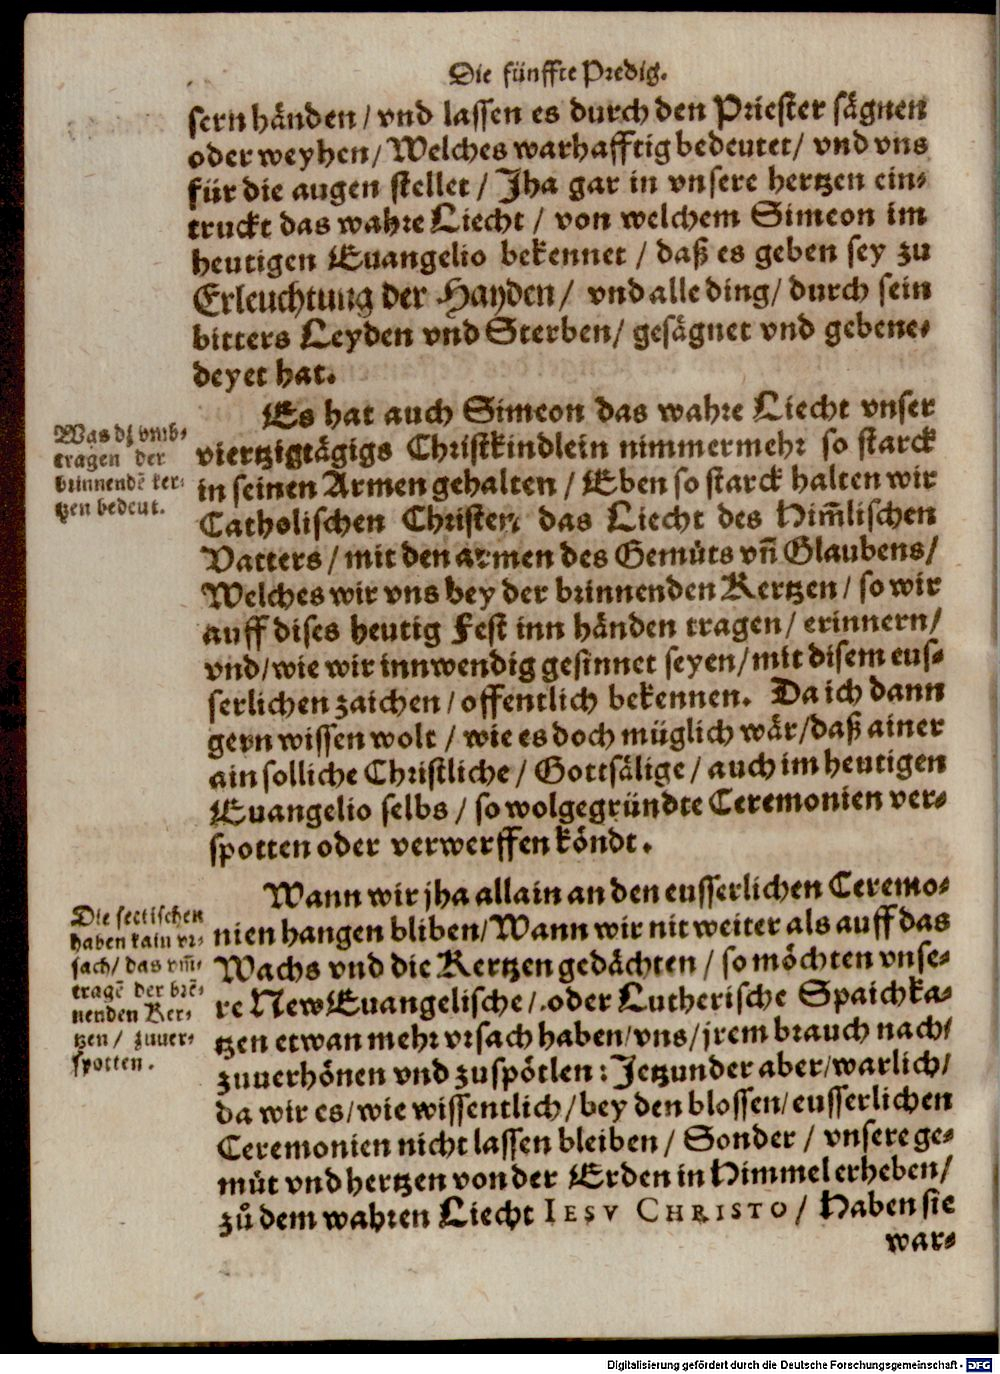 Die fünffte Predig.
sern händen / vnd lassen es durch den Priester sägnen
oder weyhen / Welches warhafftig bedeutet / vnd vns
für die augen stellet / Jha gar in vnsere hertzen ein-
truckt das wahre Liecht / von welchem Simeon im
heutigen Euangelio bekennet / daß es geben sey zu
Erleuchtung der Hayden / vnd alle ding / durch sein
bitters Leyden vnd Sterben / gesägnet vnd gebene-
deyet hat.
Es hat auch Simeon das wahre Liecht vnser
viertzigtägigs Christkindlein nimmermehr so starck
in seinen Armen gehalten / Eben so starck halten wir
Catholischen Christen, das Liecht des Him̃lischen
Vatters / mit den armen des Gemüts vñ Glaubens /
Welches wir vns bey der brinnenden Kertzen / so wir
auff dises heutig Fest inn händen tragen / erinnern /
vnd / wie wir innwendig gesinnet seyen / mit disem eus-
serlichen zaichen / offentlich bekennen. Da ich dann
gern wissen wolt / wie es doch müglich wär / daß ainer
ain solliche Christliche / Gottsälige / auch im heutigen
Euangelio selbs / so wolgegründte Ceremonien ver-
spotten oder verwerffen köndt.
Was dz vmb-
tragen der
brinnendẽ ker-
tzen bedeut.
Wann wir jha allain an den eusserlichen Ceremo-
nien hangen bliben / Wann wir nit weiter als auff das
Wachs vnd die Kertzen gedächten / so möchten vnse-
re New Euangelische / oder Lutherische Spaichka-
tzen etwan mehr vrsach haben / vns / jrem brauch nach /
zuuerhönen vnd zuspötlen : Jetzunder aber / warlich /
da wir es / wie wissentlich / bey den blossen / eusserlichen
Ceremonien nicht lassen bleiben / Sonder / vnsere ge-
müt vnd hertzen von der Erden in Himmel erheben /
zů dem wahren Liecht IESV CHRISTO / Haben sie
war-
Die sectischen
haben kain vr-
sach / das vm̃-
tragẽ der brẽ-
nenden Ker-
tzen / zuuer-
spotten.
Digitalisierung gefördert durch die Deutsche Forschungsgemeinschaft - DFG